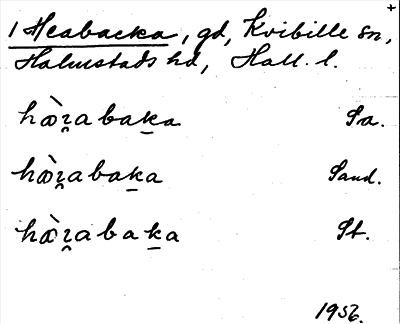 1 Heabacka, gd, Kvibille sn,
Halmstads hd, Hall. l.
hæ̀ɿ̯abaḵa Sa.
hæ̀ɿ̯abaḵa Sand.
hæ̀ɿ̯abaḵa St.
1956.